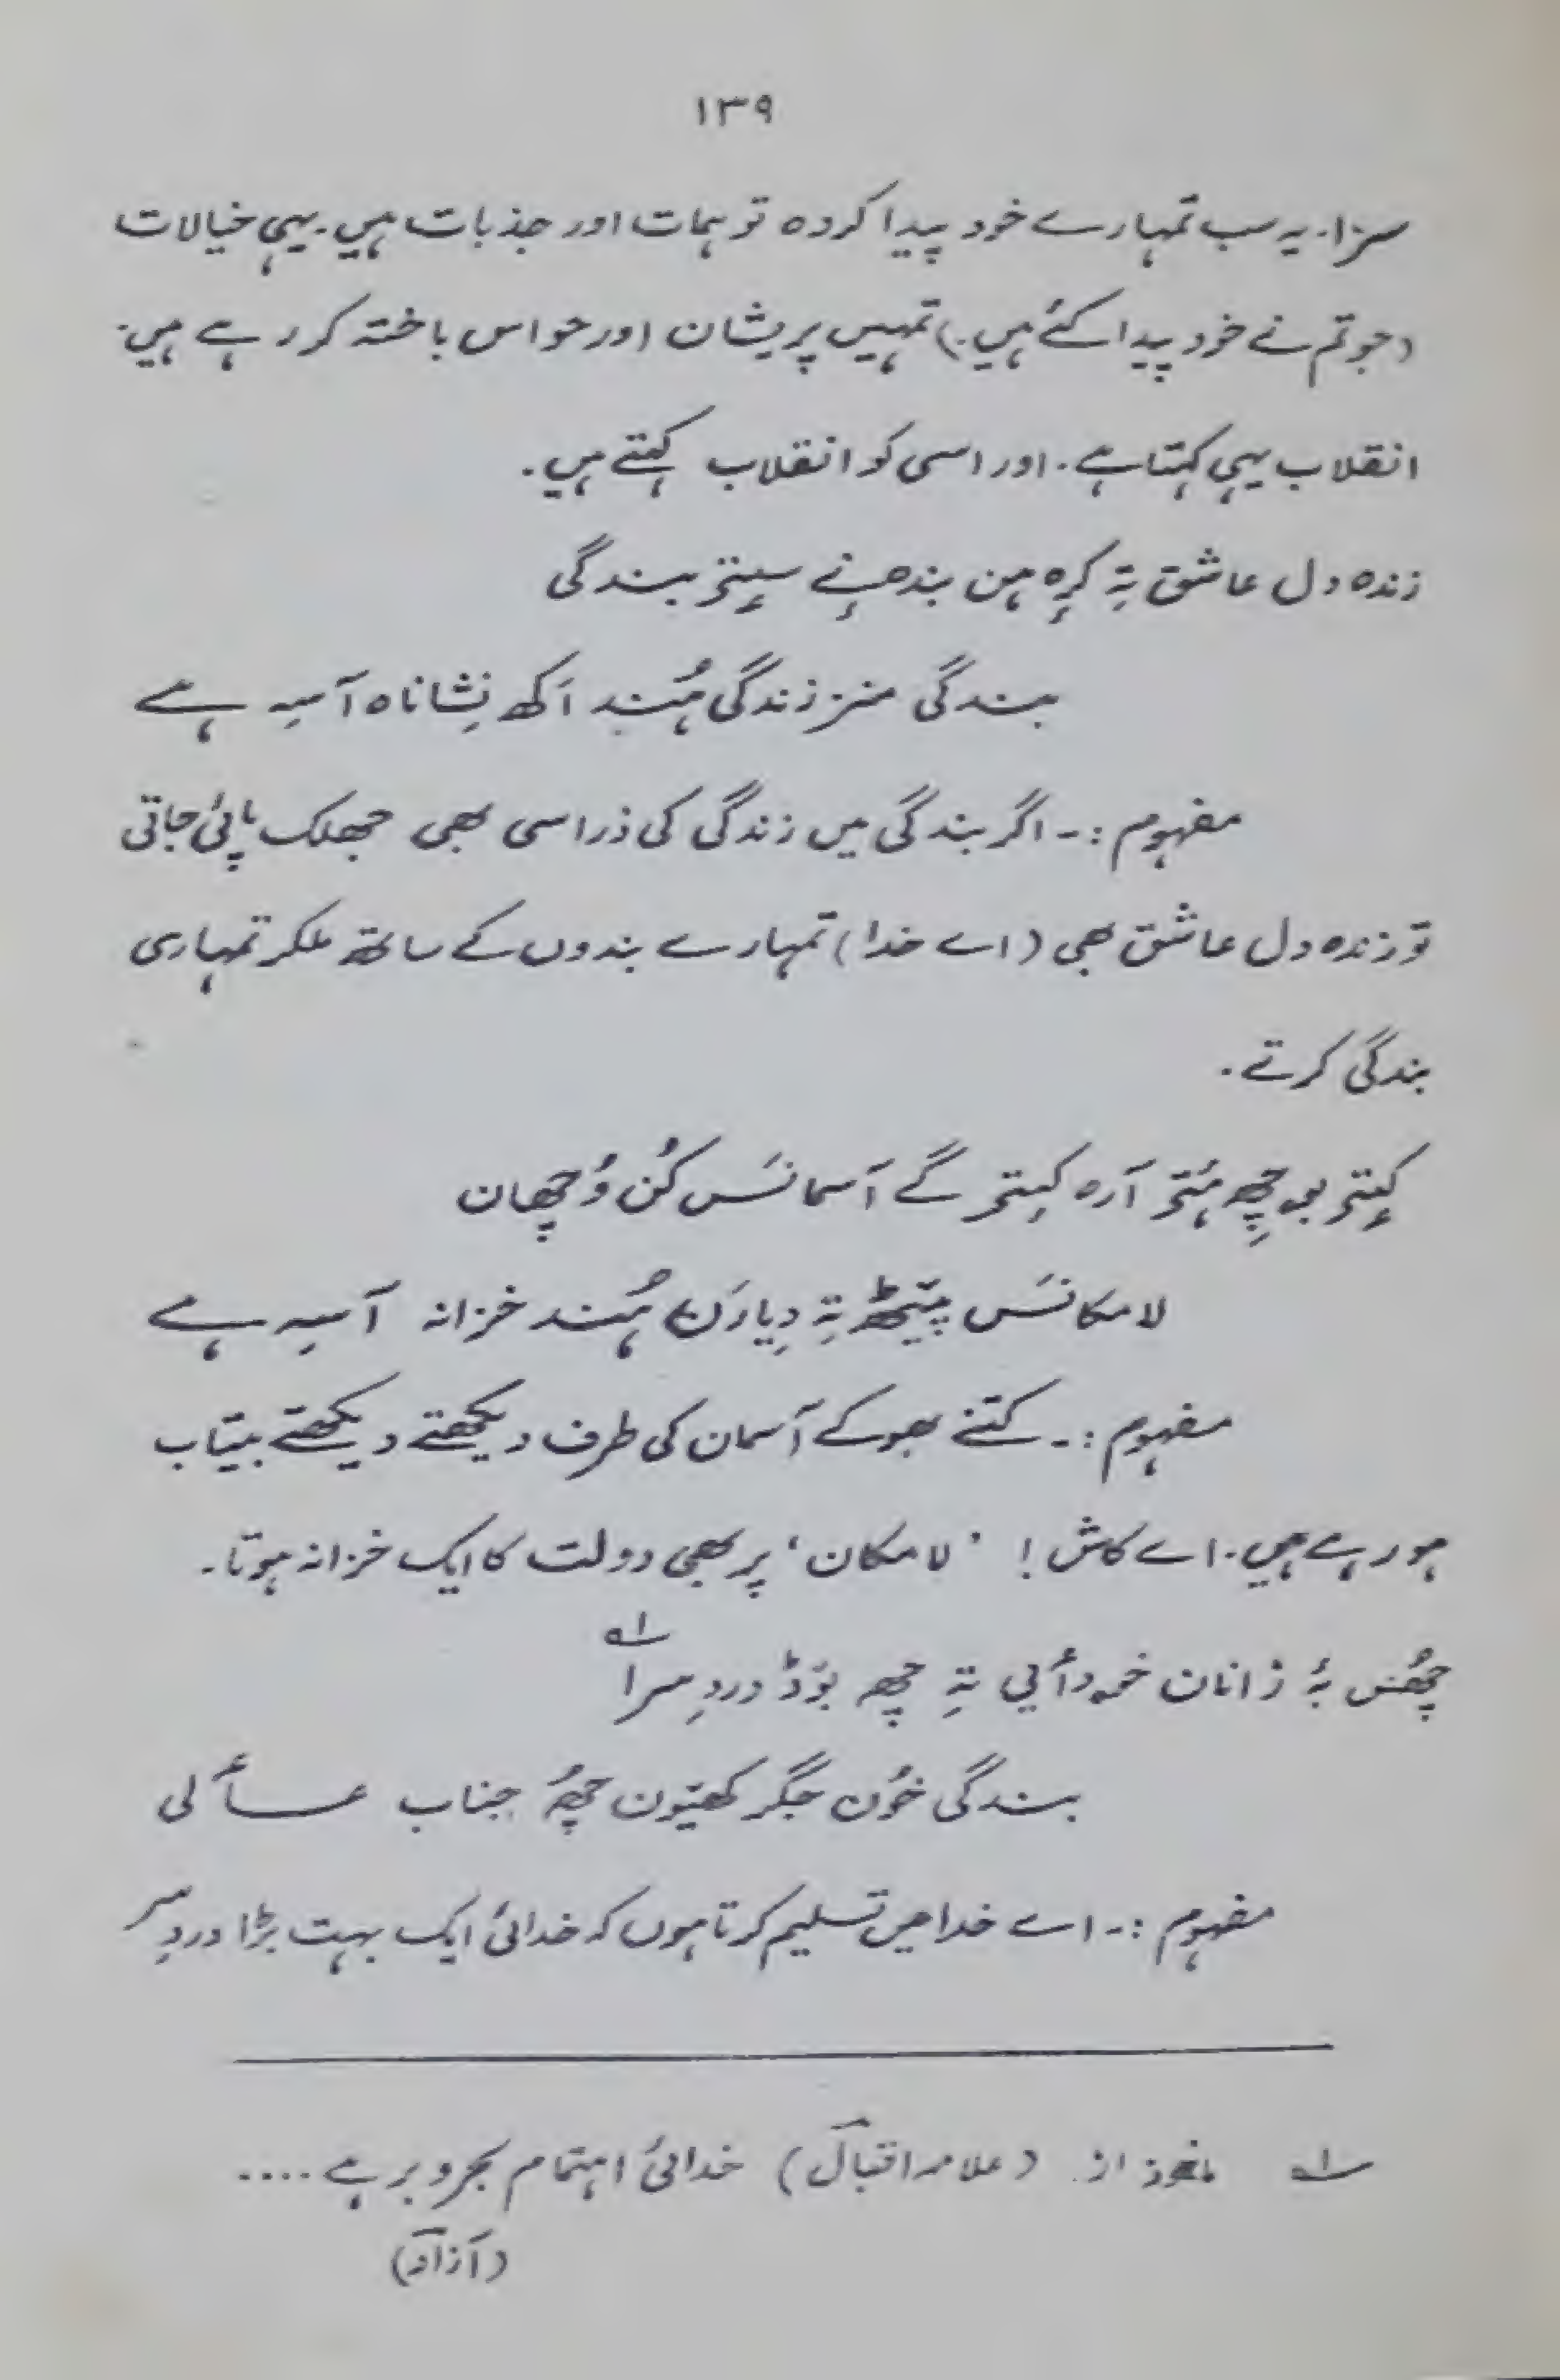 ۱۳۹
سزا. یہ سب تمہارے خود پیدا کردہ توہمات اور جذبات ہیں. یہی خیالات
(جو تم نے خود پیدا کئے ہیں.) تمہیں پریشان اور حواس باختہ کر رہے ہیں.
انقلاب یہی کہتا ہے. اور اسی کو انقلاب کہتے ہیں.
زندہ دل عاشق تہِ کرِہ ہن بندھنے سیٖتۍ بندگی
بندگی منز زندگی ہُند اَکھ نِشاناہ آسہِ ہے
مفہوم :۔ اگر بندگی میں زندگی کی ذرا سی بھی جھلک پائی جاتی
تو زندہ دل عاشق بھی (اے خدا) تمہارے بندوں کے ساتھ ملکر تمہاری
بندگی کرتے.
کیٖتۍ بو چھِہ ۂتۍ آرہ کیٖتۍ گے آسمانَس کُن وُچھان
لامکانَس پیٚٹھ تہِ دِیارَن ہُند خزانہ آسہِ ہے
مفہوم :۔ کتنے بھوکے آسمان کی طرف دیکھتے دیکھتے بیتاب
ہو رہے ہیں. اے کاش! 'لامکان' پر بھی دولت کا ایک خزانہ ہوتا۔
چھُس بہٕ زانان خدٲیی تہِ چھِ بوٚڈ دردِ سرا ؎۱
بندگی خوٗنِ جگر کھیوٚن چھُہ جناب عٲلی
مفہوم :۔ اے خدا میں تسلیم کرتا ہوں کہ خدائی ایک بہت بڑا دردِ سر
؎۱ ماخوذ از. (علامہ اقبالؔ) خدائی اہتمام بحر و بر ہے ....
(آزادؔ)